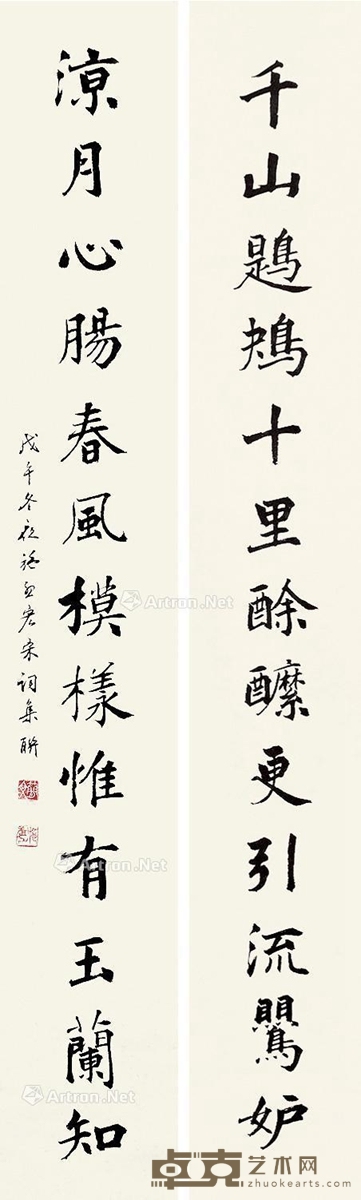 千山鶗鴂十里酴醾更引流鶯妒
涼月心腸春風模樣惟有玉蘭知
戊午冬夜
宋詞集聯
Artron.Net
Artron.Net
Artron.Net
Artron.Net
卓克艺术网
www.zhuokearts.com